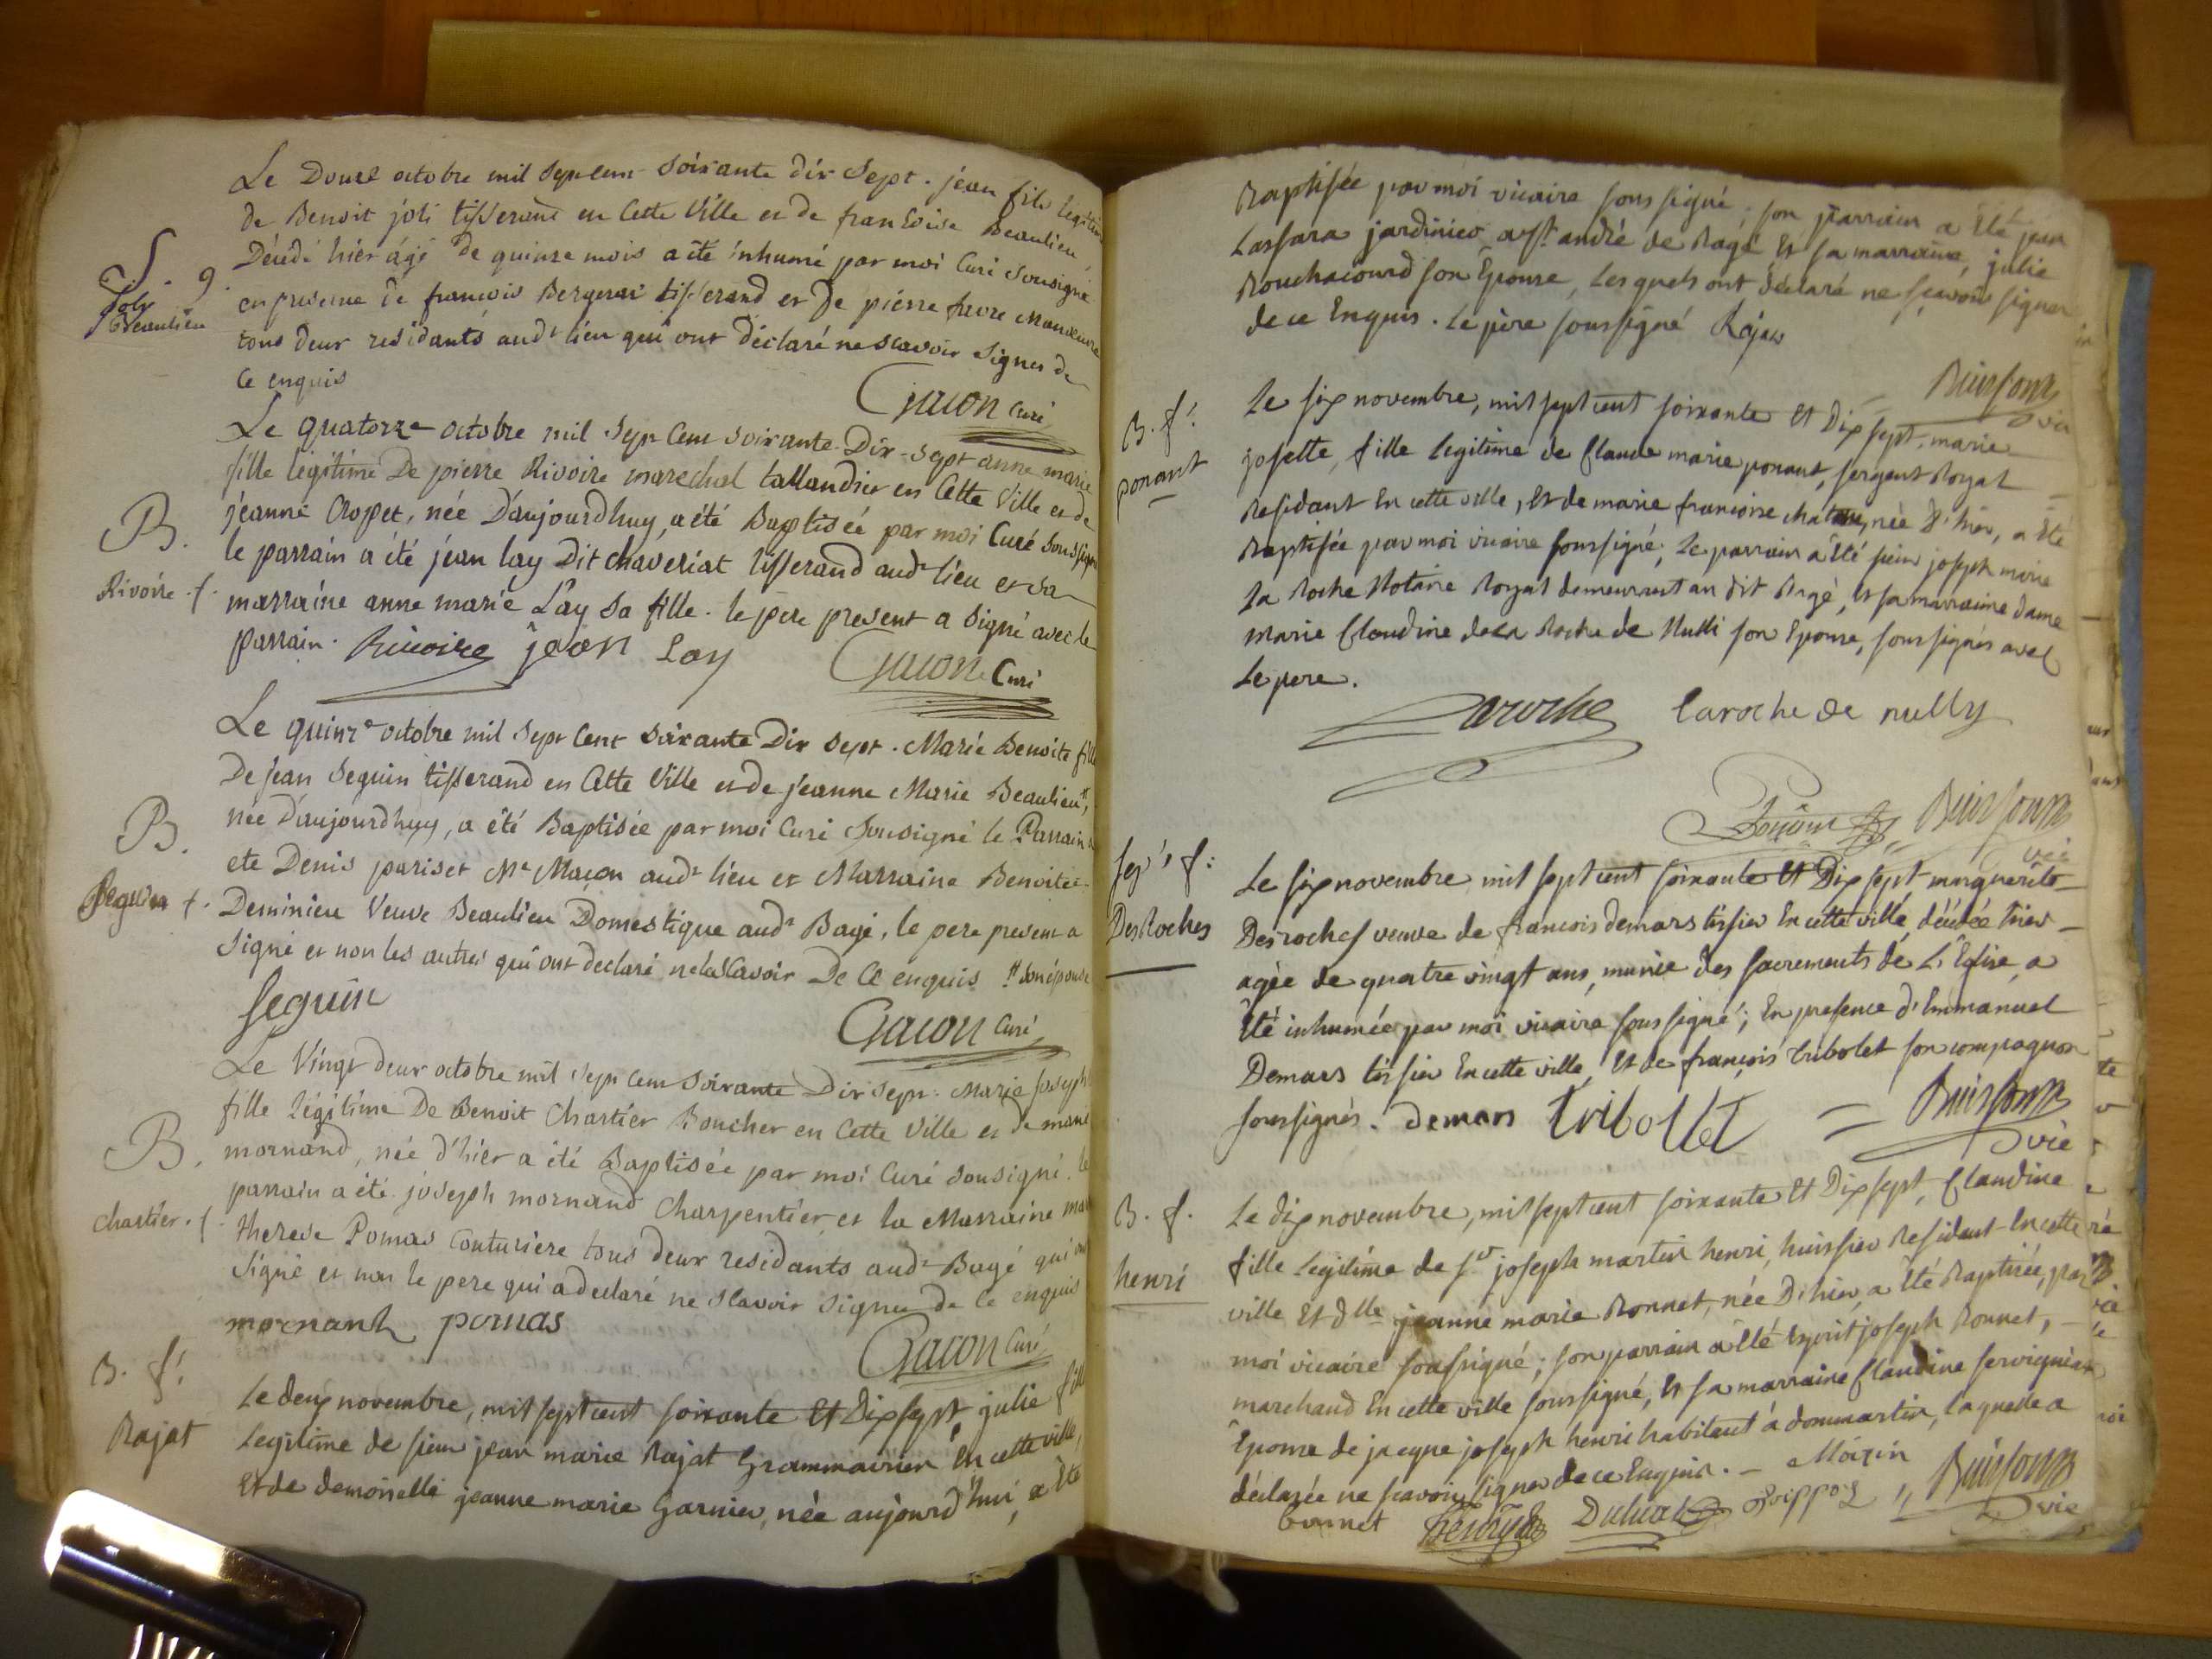 Le Douze octobre mil sept cent soixante dix sept. jean fils legitime
de Benoit joli tisserand en cette Ville et de francoise Beaulieu,
Décédé hier ágé de quinze mois a été inhumé par moi Curé Sousigné
S. 9.
Joly
Beaulieu
en presence de francois Bergeras tisserand et de pierre favre Manoeuvre
tous deux residants audt lieu qui ont déclaré ne scavoir signer de
ce enquis
Gacon Curé
Le quatorze octobre mil sept Cent soixante Dix-sept anne marie
fille legitime De pierre Rivoire marechal tallandier en Cette Ville et de
jeanne Cropet, née D'aujourdhuy, a été Baptisée par moi Curé soussigné
B.
Rivoire. f.
le parrain a été jean lay Dit chaveriat tisserand audt lieu et sa
marraine anne marie Lay sa fille. le pere present a signé avec le
parrain. Rivoire jean Lay Gacon Curé
Le quinze octobre mil sept Cent soixante Dix sept. Marie Benoite fille
De jean Seguin tisserand en Cette Ville et de jeanne Marie Beaulieu #,
née D'aujourdhuy, a été Baptisée par moi Curé sousigné le Parrain a
B.
Seguin f.
ete Denis pariset Me Maçon audt lieu et Marraine Benoite
Deminieu Veuve Beaulieu Domestique audt Bagé, le pere present a
Signé et non les autres qui ont declaré ne le Scavoir De Ce enquis # son épouse
Seguin
Gacon Curé
Le Vingt deux octobre mil Sept Cent Soixante Dix sept. Marie Joseph
fille légitime De Benoit Chartier Boucher en Cette Ville et de marie
mornand, née d'hier a été Baptisée par moi Curé sousigné. le
B.
Chartier. f.
parrain a été joseph mornand Charpentier et la Marraine
therese Pomas Couturiere tous deux residants audt Bagé qui ont
Signé et non le pere qui a declaré ne scavoir signer de ce enquis
mornand pomas
Gacon Curé
B. f.
Rajat
Le deux novembre, mil sept cent soixante Et Dix sept, julie fille
Legitime de sieur jean marie Rajat Grammairien En cette ville,
Et de demoiselle jeanne marie Garnier, née aujourd'hui, a Eté
Baptisée par moi vicaire sous signé; son parrain a Eté jean
Lassara jardinier a st andré de Bagé Et sa marraine, julie
Bouchacourd son Epouse, Lesquels ont déclaré ne sçavoir signer
de ce Enquis. Le père soussigné Rajat
Buisson vic
B. f.
ponant
Le six novembre, mil sept cent soixante Et Dix sept, marie
josette, fille legitime de Claude marie ponant, sergent Royal
Residant En cette ville, Et de marie francoise, née D'hier, a Eté
Baptisée par moi vicaire soussigné; Le parrain a Eté sieur joseph marie
La Roche Notaire Royal demeurant au dit Bagé, Et sa marraine dame
Marie Claudine de La Roche de Nulli son Epouse, soussignés avec
Le pere.
Laroche laroche de nully
Ponant Buisson vic
sep. f.
DesRoches
Le six novembre, mil sept cent soixante Et Dix sept marguerite
Desroches veuve de francois demars tissier En cette ville, décédée hier
agée de quatre vingt ans, munie des sacrements de L'Eglise, a
Eté inhumée par moi vicaire soussigné; En presence d'Emmanuel
Demars tissier En cette ville, Et de françois tribolet son compagnon
soussignés. Demars tribollet Buisson vic
B. f.
henri
Le dix novembre, mil sept cent soixante Et Dix sept, Claudine
fille Legitime de sr joseph martin henri, huissier Residant En cette
ville Et dlle jeanne marie Bonnet, née D'hier, a Eté Baptisée, par
moi vicaire soussigné; son parrain a Eté Esprit joseph Bonnet,
marchand En cette ville soussigné, Et sa marraine Claudine servignian
Epouse de jacque joseph henri habitant à dommartin, laquelle a
déclarée ne sçavoir signer de ce Enquise. Moizin
bonnet henry Duluat Buisson vic